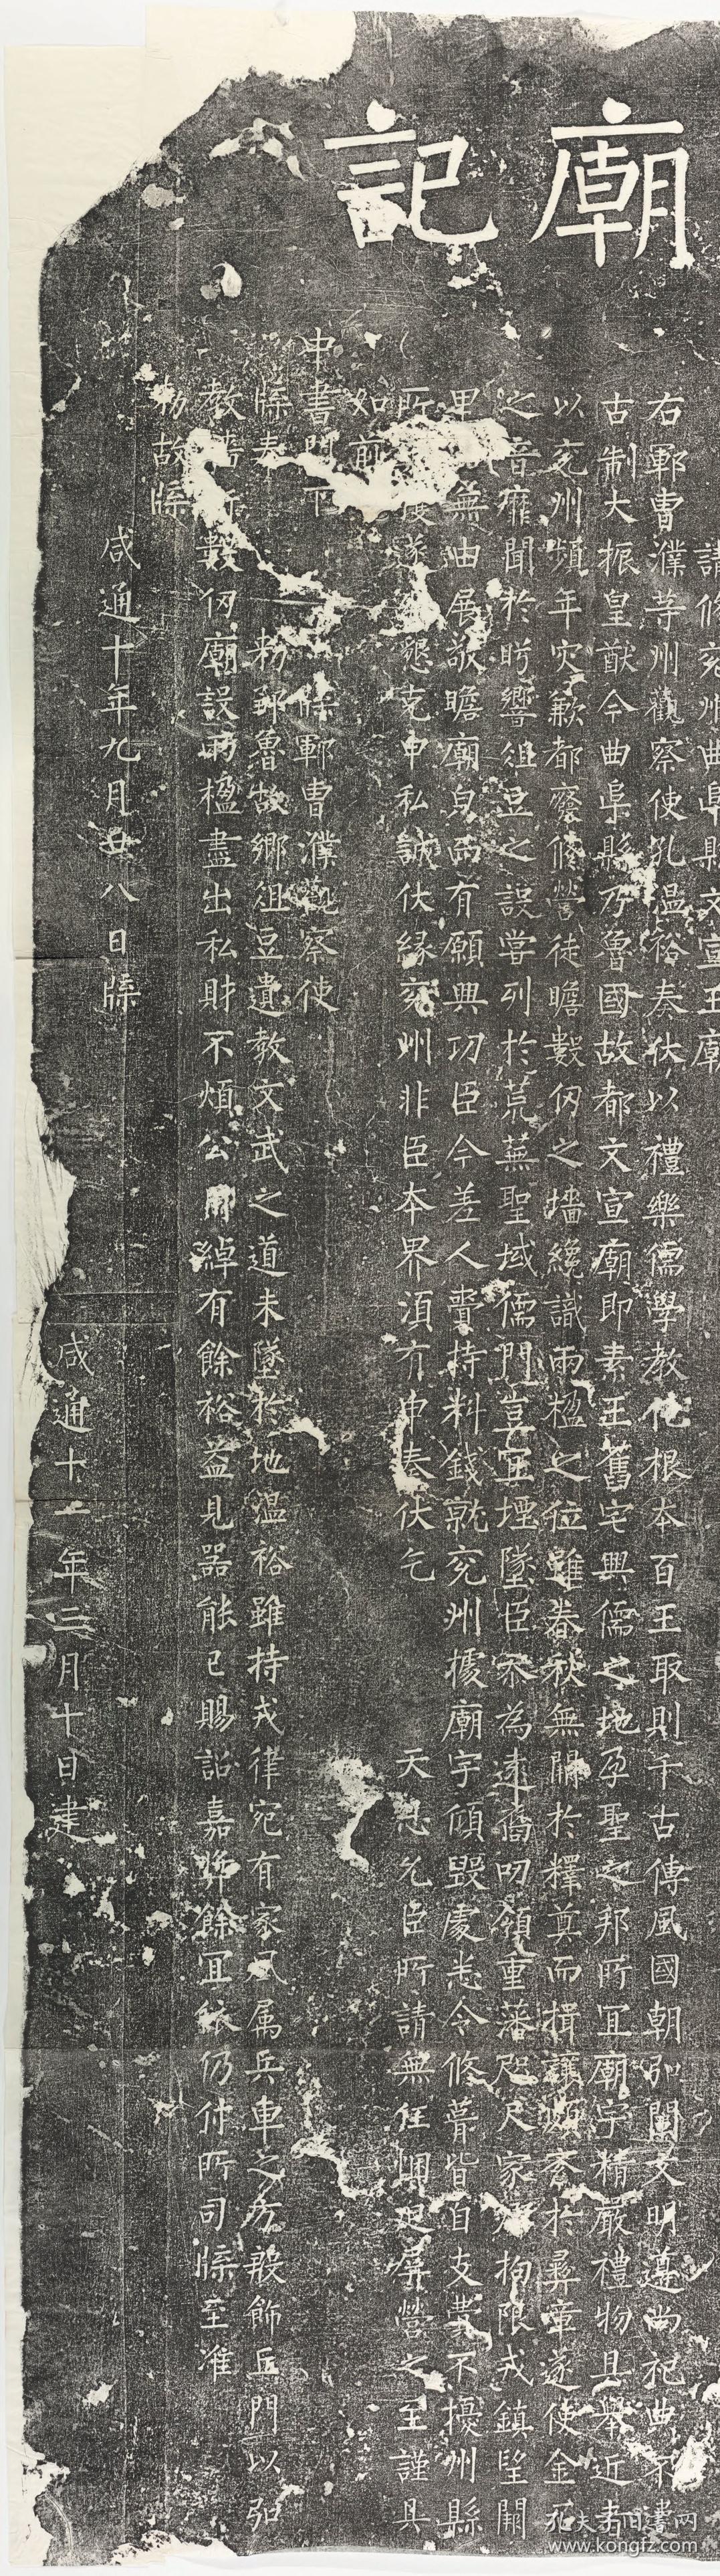 廟記
請修兗州曲阜縣文宣王廟
右鄆曹濮等州觀察使孔溫裕奏伏以禮樂儒學教化根本百王取則千古傳風國朝弘闡文明遵尚祀典不
古制大振皇猷今曲阜縣乃魯國故都文宣廟即素王舊宅興儒之地孕聖之邦所宜廟宇精嚴禮物具舉近者
以兗州頻年灾歉都廢修營徒瞻數仞之墻纔識兩楹之位雖春秋無闕於釋奠而揖讓頗紊於彝章遂使金石
之音靡聞於盻響俎豆之設嘗列於荒蕪聖域儒門豈宜堙墜臣忝為遠裔叨領重藩咫尺家 拘限戎鎮望闕
里 無由展敬瞻廟皃而有願興功臣今差人賫持料錢就兗州據廟宇傾毀處悉令修葺皆自支費不擾州縣
所 遂 懇克申私誠伏緣兗州非臣本界須有申奏伏乞 天恩允臣所請無任 屏營之至謹具
如前
中書門下 牒鄆曹濮觀察使
牒奉 勑鄒魯故鄉俎豆遺教文武之道未墜於地溫裕雖持戎律宛有家風属兵車之方殷飾丘門以弘
教 數仞廟設兩楹盡出私財不煩公用綽有餘裕益見器能已賜詔嘉 餘宜依仍付所司牒至准
勑故牒
咸通十年九月廿八日牒
咸通十一年三月十日建
孔夫子旧書网
www.kongfz.com